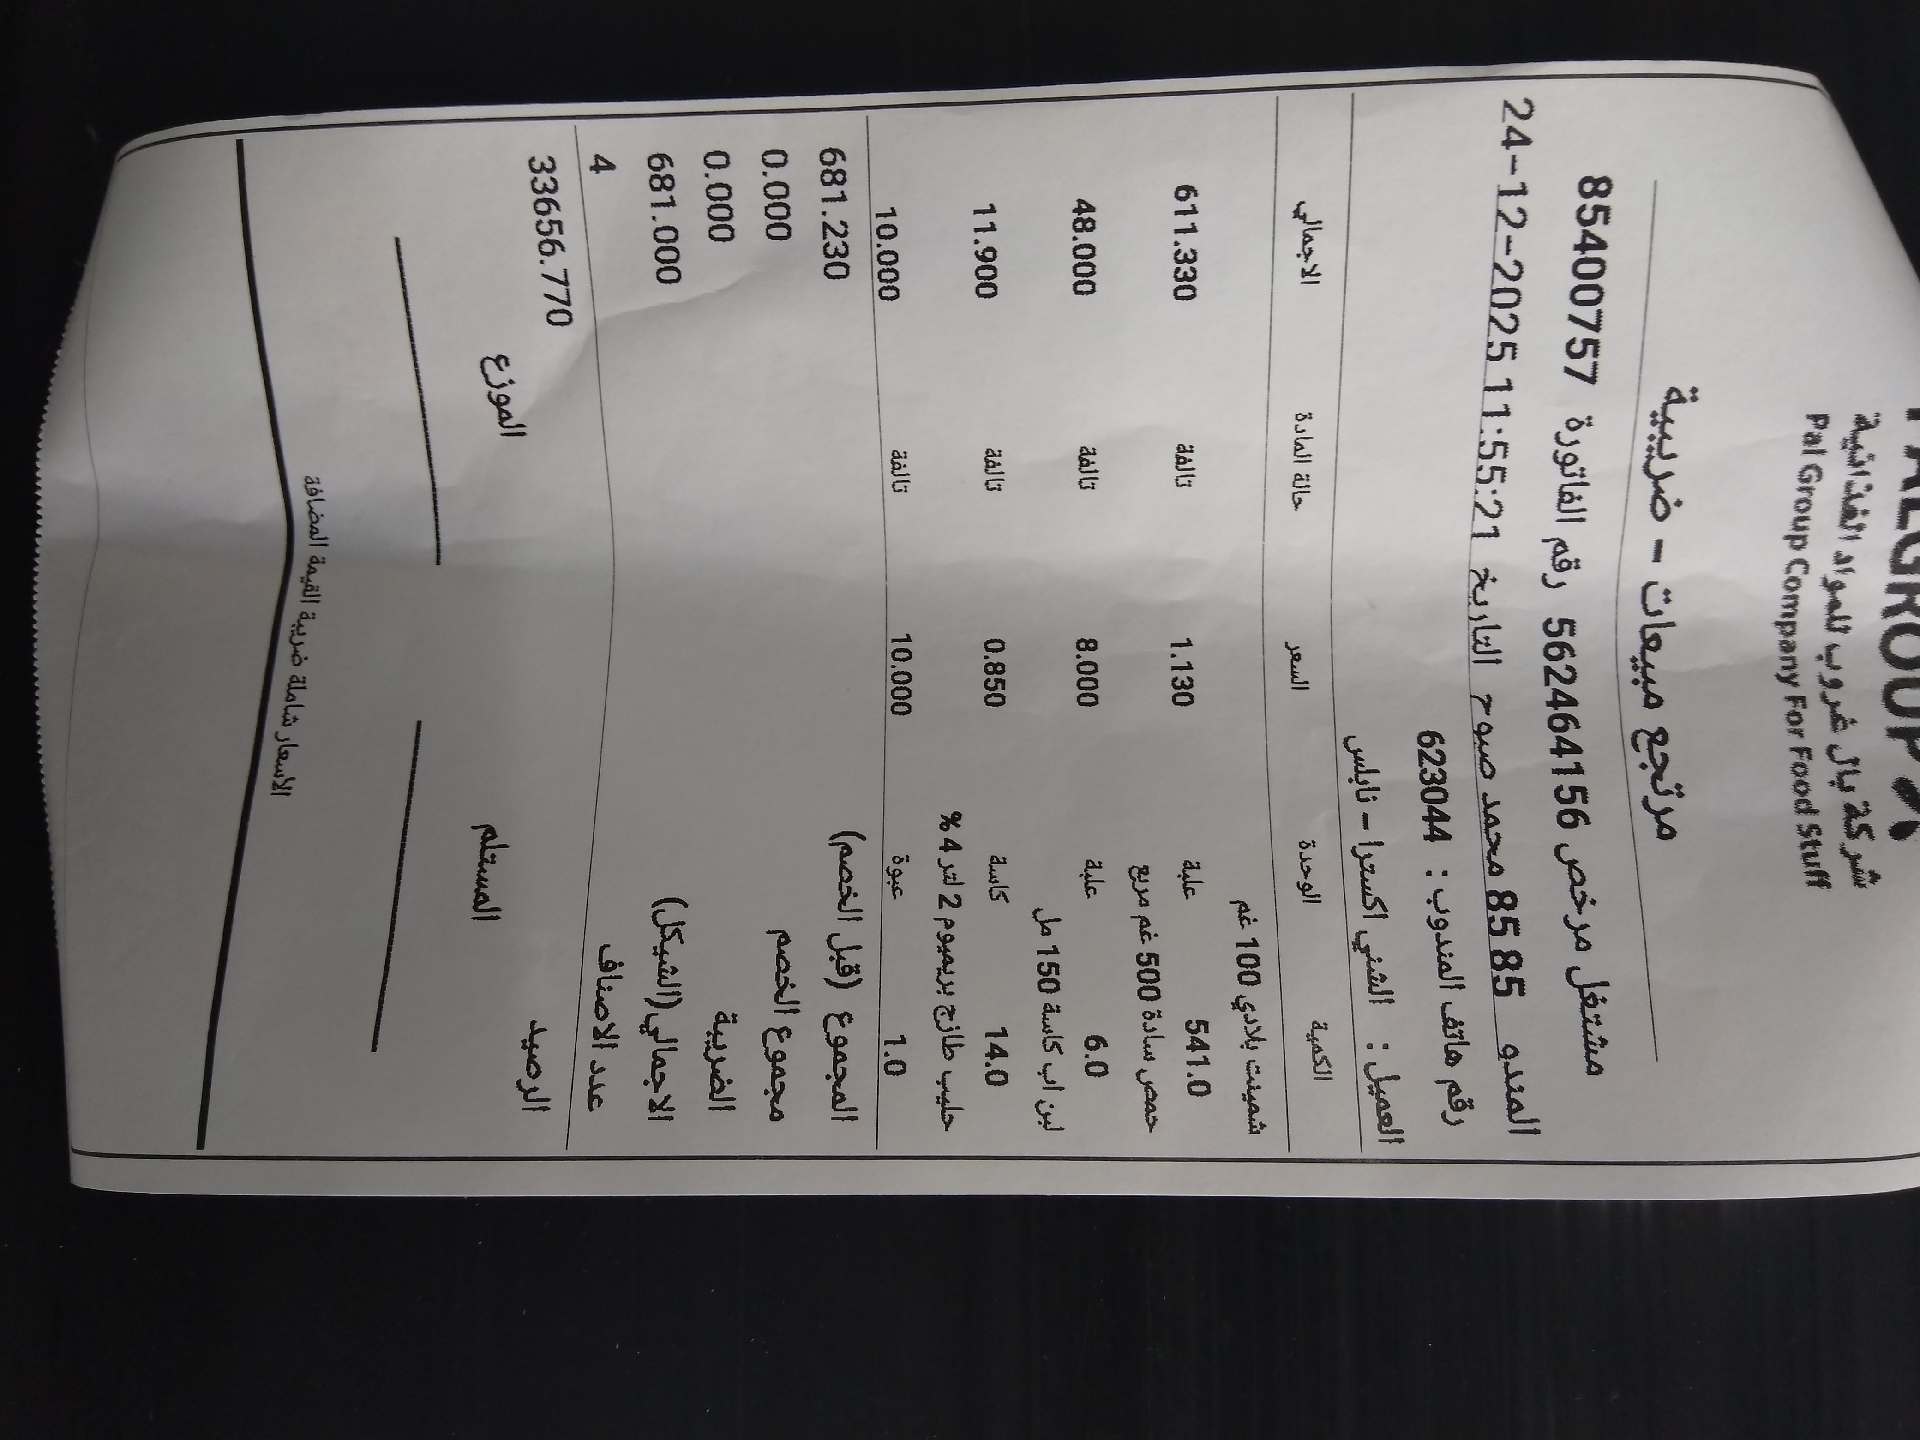 PALGROUP
شركة بال غروب للمواد الغذائية
Pal Group Company For Food Stuff
مرتجع مبيعات - ضريبية
مشتغل مرخص 562464156 رقم الفاتورة 85400757
المندو 85 85 محمد صبوح التاريخ 24-12-2025 11:55:21
رقم هاتف المندوب : 623044
العميل : الشني اكسترا - نابلس
الكمية الوحدة السعر حالة المادة الاجمالي
شمينت بلادي 100 غم
541.0 علبة 1.130 تالفة 611.330
حمص سادة 500 غم مربع
6.0 علبة 8.000 تالفة 48.000
لبن اب كاسة 150 مل
14.0 كاسة 0.850 تالفة 11.900
حليب طازج بريميوم 2 لتر 4 %
1.0 عبوة 10.000 تالفة 10.000
المجموع (قبل الخصم) 681.230
مجموع الخصم 0.000
الضريبة 0.000
الاجمالي(الشيكل) 681.000
عدد الاصناف 4
الرصيد 33656.770
المستلم الموزع
الاسعار شاملة ضريبة القيمة المضافة